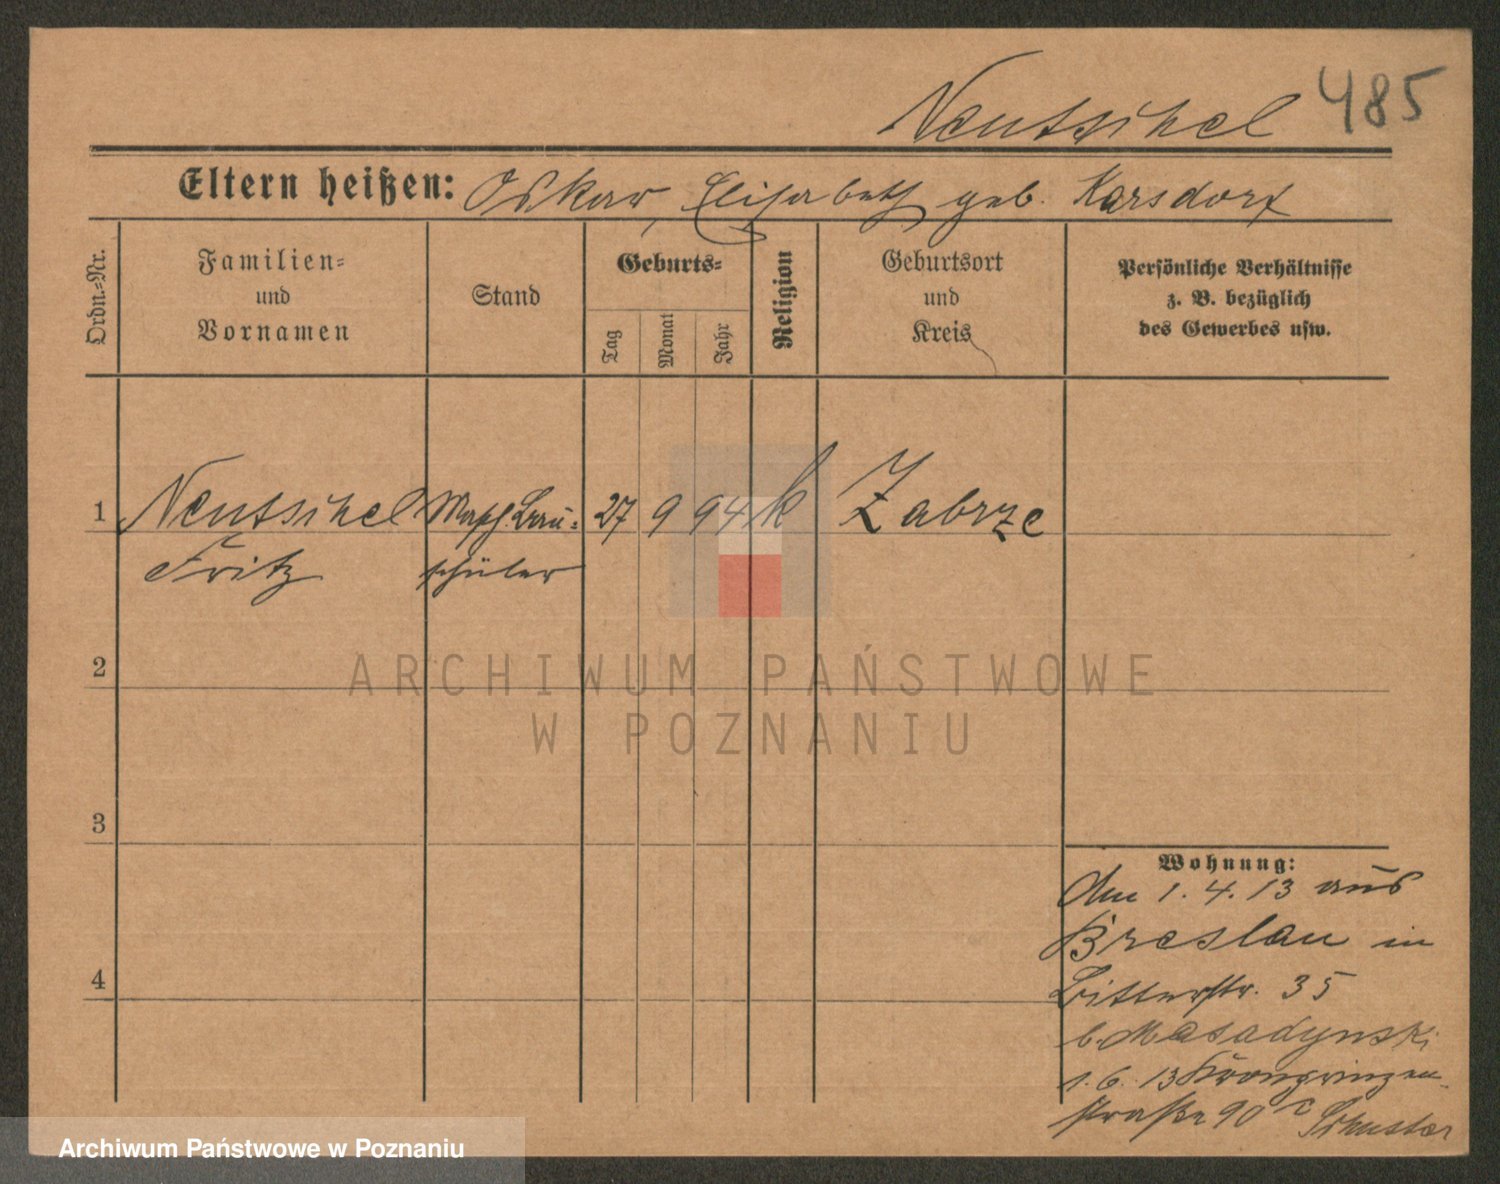 Neutschel 485
Eltern heißen: Oskar, Elisabeth geb. Karsdorf
Ordn.-Nr.
Familien-
und
Vornamen
Stand
Geburts-
Tag
Monat
Jahr
Religion
Geburtsort
und
Kreis
Persönliche Verhältnisse
z. B. bezüglich
des Gewerbes usw.
1 Neutschel Masch. Bau- 27 9 94 k Zabrze
Fritz schüler
2
ARCHIWUM PAŃSTWOWE
W POZNANIU
3
4
Wohnung:
Am 1. 4. 13 aus
Breslau in
Bitterstr. 35
b.
1. 6. 13 Kronprinzen-
straße 90 Schuster
Archiwum Państwowe w Poznaniu